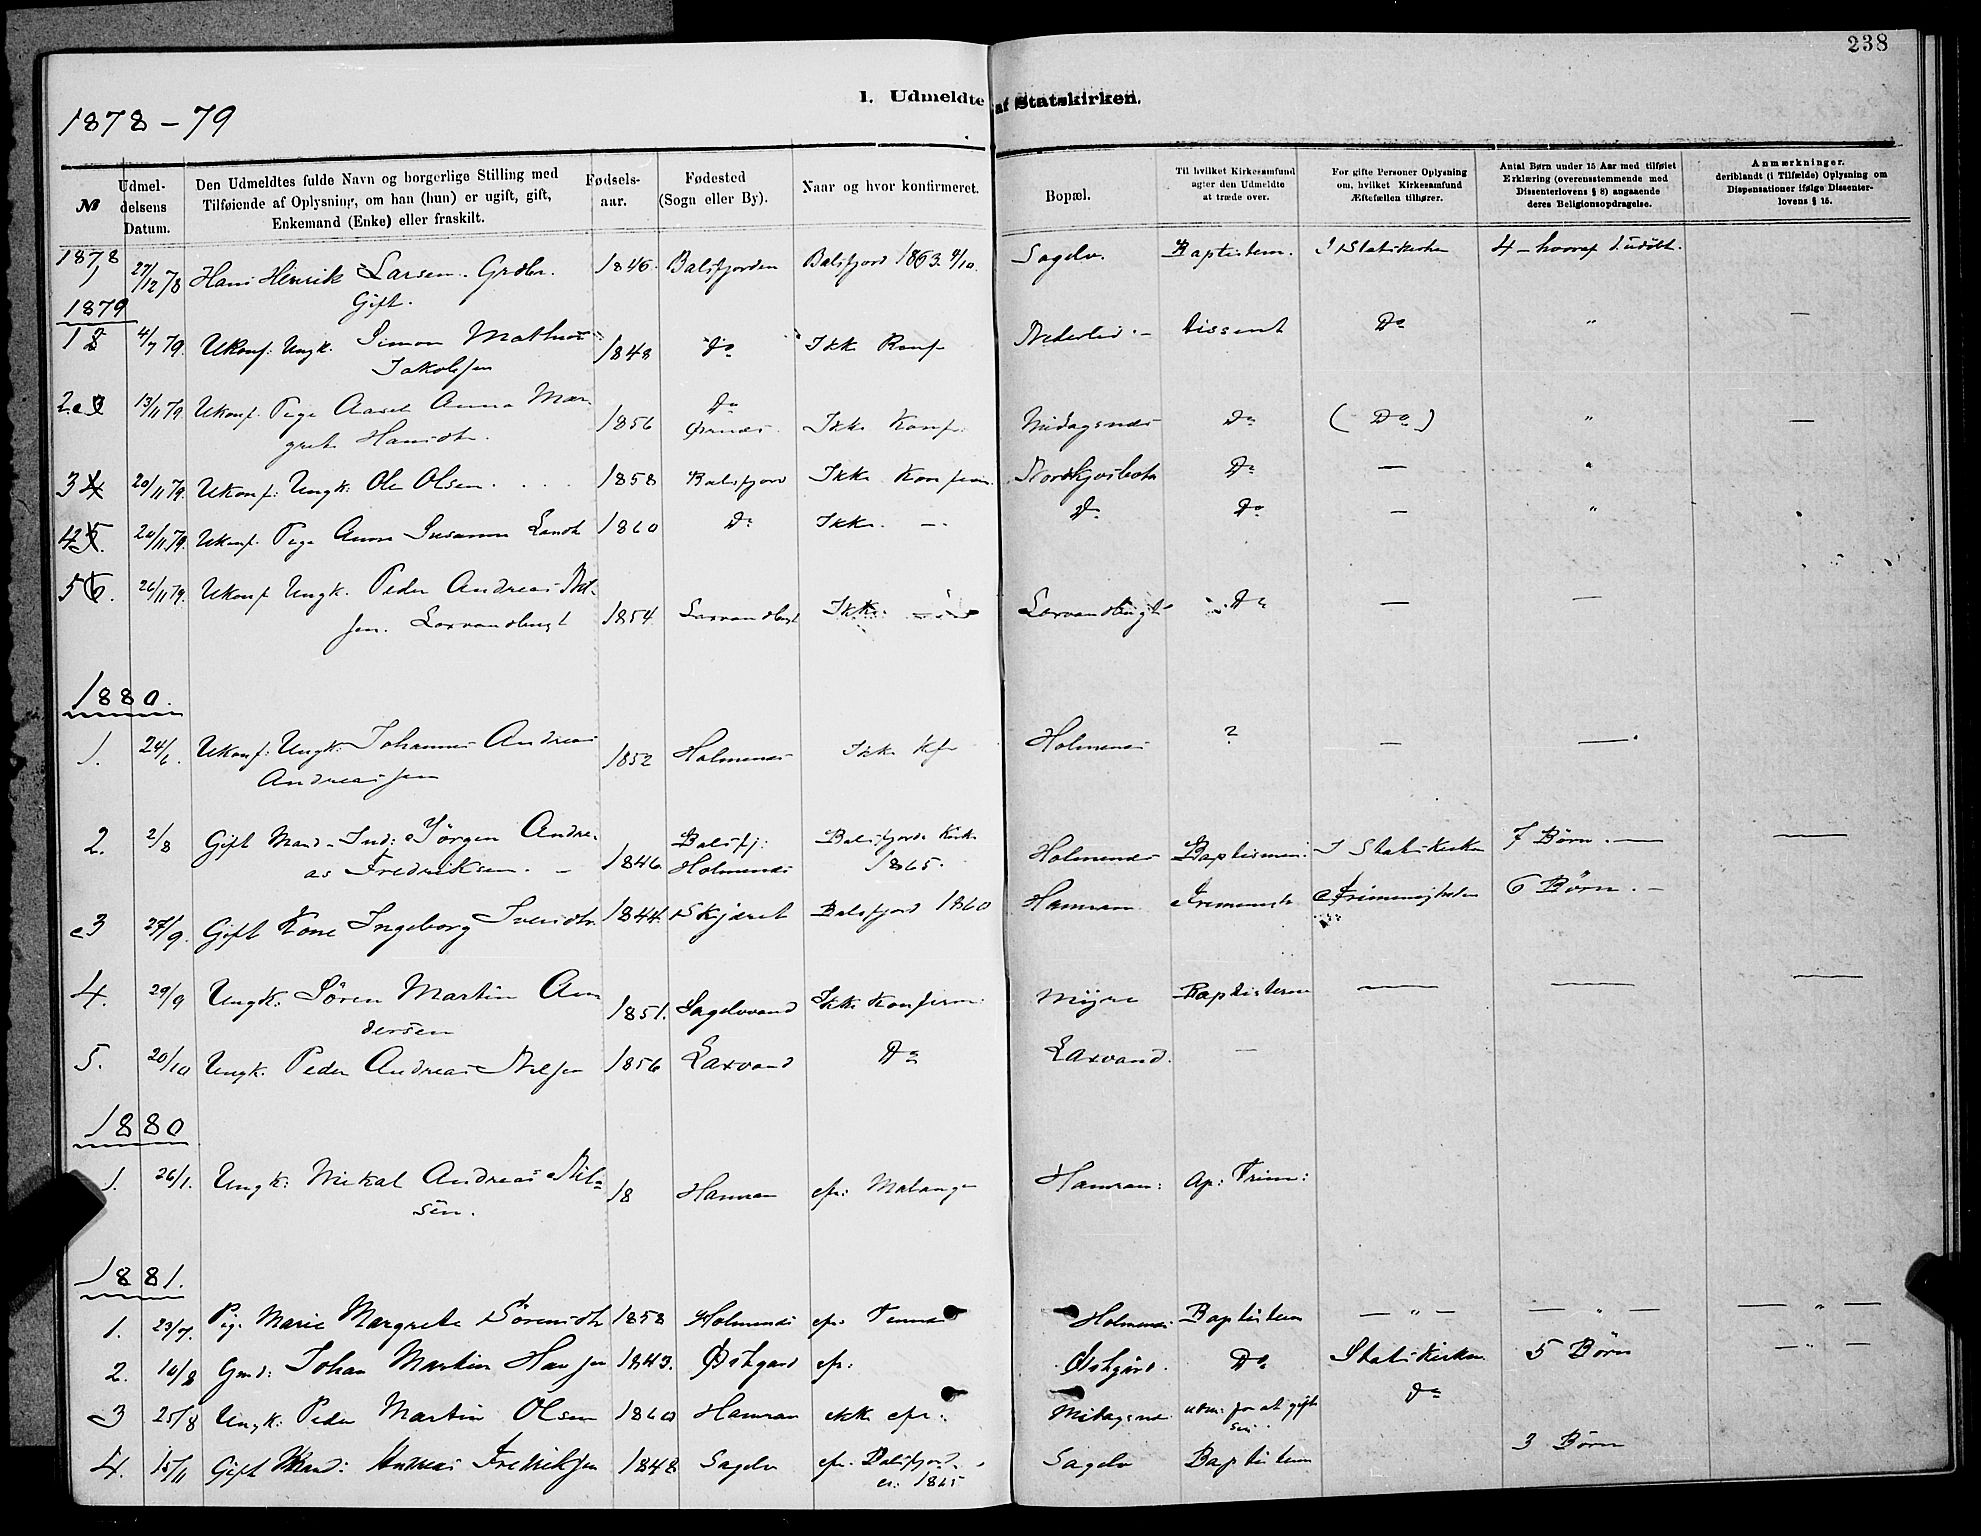 238
1. Udmeldte af Statskirken.
1878-79
№
Udmel-
delsens
Datum.
Den Udmeldtes fulde Navn og borgerlige Stilling med
Tilføiende af Oplysning, om han (hun) er ugift, gift,
Enkemand (Enke) eller fraskilt.
Fødsels-
aar.
Fødested
(Sogn eller By).
Naar og hvor konfirmeret.
Bopæl.
Til hvilket Kirkesamfund
agter den Udmeldte
at træde over.
For gifte Personer Oplysning
om, hvilket Kirkesamfund
Ægtefællen tilhører.
Antal Børn under 15 Aar med tilføiet
Erklæring (overensstemmende med
Dissenterlovens § 8) angaaende
deres Religionsopdragelse.
Anmærkninger.
deriblandt (i Tilfælde) Oplysning om
Dispensationer ifølge Dissenter-
lovens § 15.
1878
1 27/12 78 Hans Henrik Larsen. Grdbr. 1846. Balsfjorden Balsfjord 1863 4/10. Sagelv. Baptistern. I Statskirken 4 - hvoraf 1 udøbt.
Gift.
1879
1 2 4/7 79. Ukonf: Ungk. Simon Mathias 1848 Do Ikke Konf Nederlid - Dissent Do " —
Jakobsen
2 3 13/11 79 Ukonf. Pige Aasel Anna Mar- 1856 Do Ikke Konf. Midagsnes Do (Do) " —
grete Hansdtr. Ørnes
3 4 20/11 79. Ukonf: Ungk: Ole Olsen. . . . 1858 Balsfjord Ikke Konfirm. Nordkjosbotn Do — "
4 5. 20/11 79. Ukonf. Pige Anne Susanne Larsdtr 1860 Do Ikke. —. Do. Do — "
5 6. 26/11 79. Ukonf Ungk. Peder Andreas Niel- 1854. Laxvandbugt Ikke. — Laxvandbugt Do — —
sen. Laxvandbugt
1880.
1. 24/6. Ukonf: Ungk: Johannes Andreas 1852 Holmenes Ikke Kfr Holmenes ? — —
Andreassen
2. 2/8 Gift Mand - Ind: Jörgen Andre- 1846 Balsfj: Balsfjords Kirke Holmenes Baptismen. I Statskirken 7 Börn. — —
as Fredriksen. — Holmenes 1865.
3 27/9. Gift Kone Ingeborg Iversdtr. 1844. Skjæret Balsfjord 1860 Hamran Frimenigheden 6 Börn. —
4. 29/9 Ungk: Sören Martin An- 1851. Sagelvvand Ikke Konfirm: Myre Baptistern — — —
dersen
5. 20/10 Ungk. Peder Andreas Nilsen 1856 Laxvand Do Laxvand. —
1880
1. 26/1. Ungk: Mikal Andreas Nil- 18 Hamran cfr: Malangen Hamran: Ap: Frim:
sen.
1881.
1. 23/7. Pig. Marie Margrete Sörensdtr 1858 Holmenes cfr. Holmenes Baptistern — " — — " — — " —
2. 16/8 Gmd: Johan Martin Hansen 1843. Østgaard cfr: Østgård. Do Statskirken. 5 Börn — " —
3 25/8 Ungk: Peder Martin Olsen 1860 Hamran ikke cfr: Midagsnes udm: for at gifte Do
sig
4. 15/11 Gift Mand: Andreas Fredriksen 1848 Sagelv cfr. Balsfjord. Sagelv Baptistern 3 Börn
1865